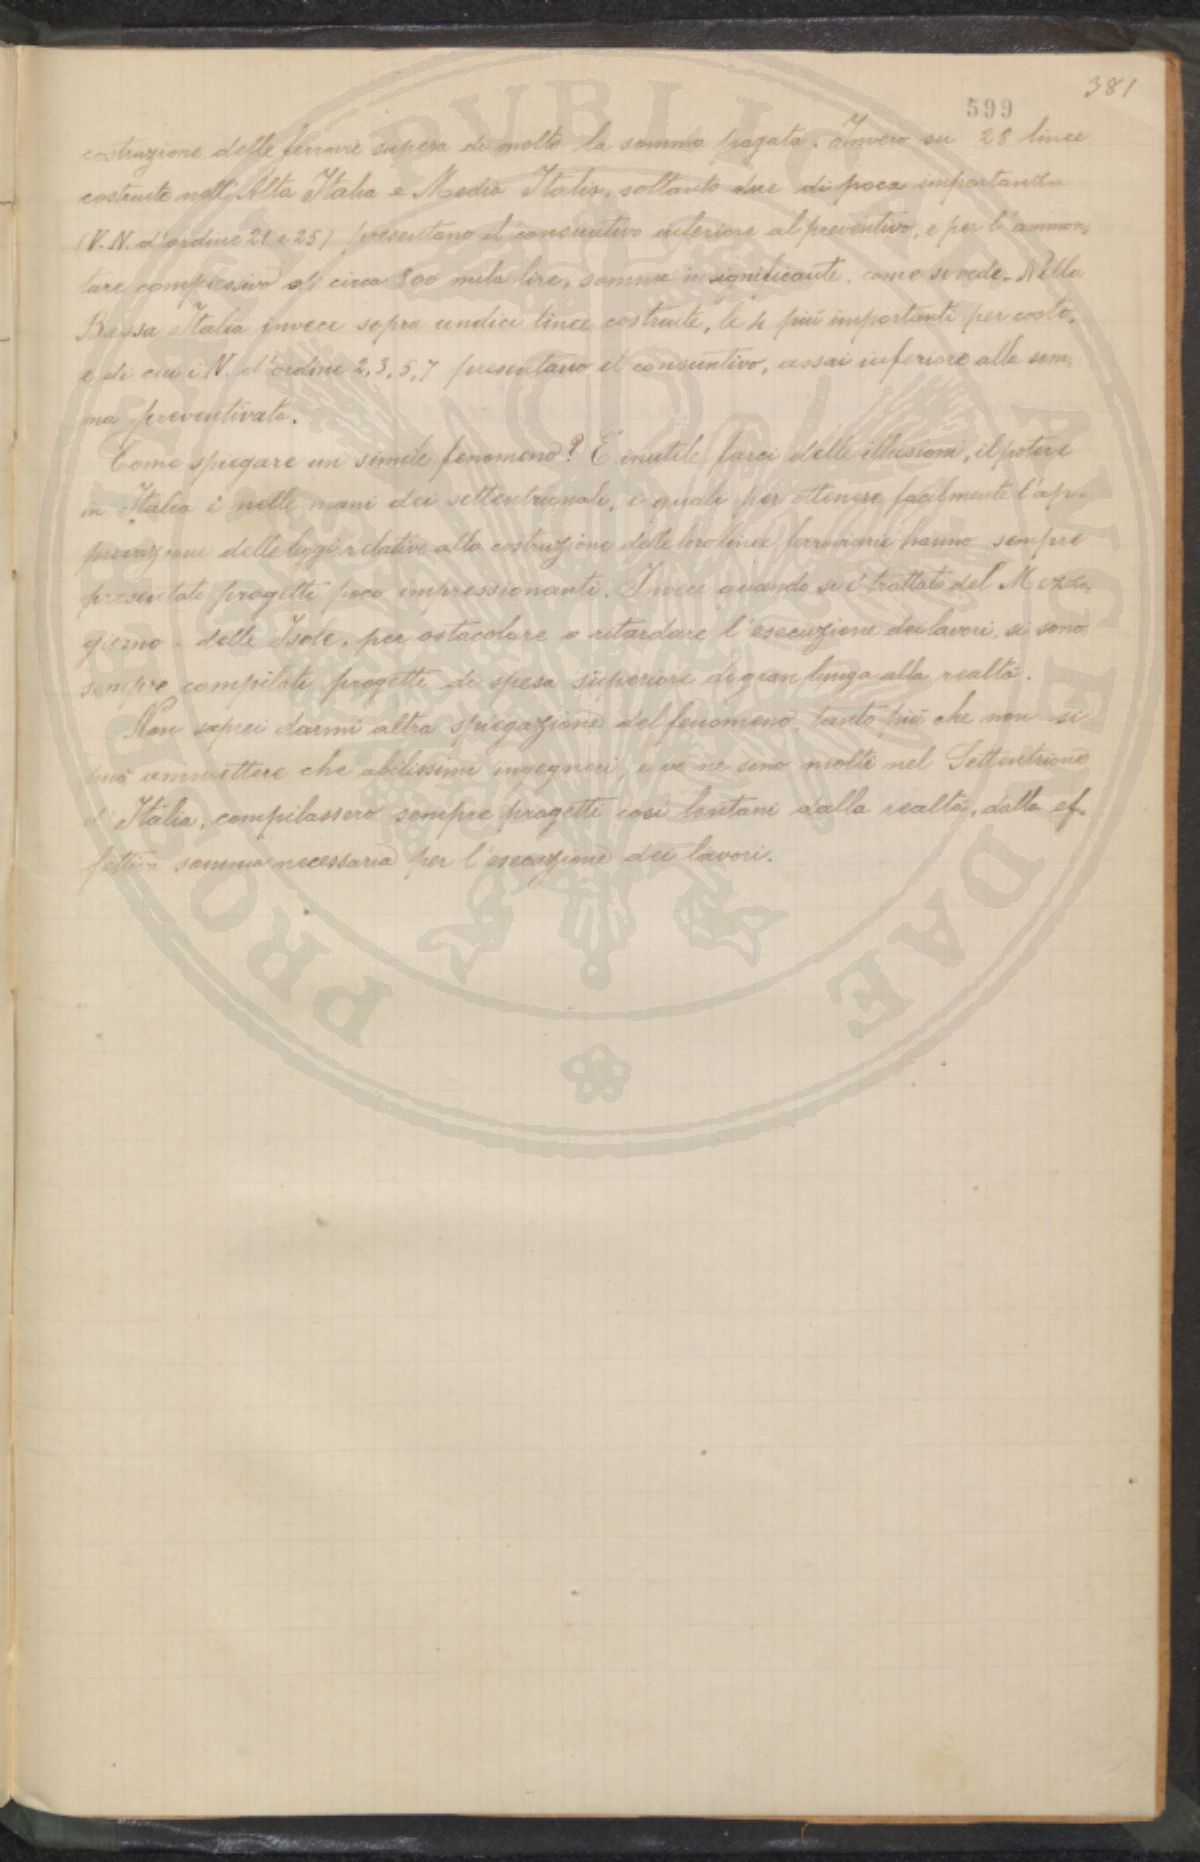 381
599
costruzione delle ferrovie supera di molto la somma pagata. Invero su 28 linee
costruite nell'Alta Italia e Media Italia, soltanto due di poca importanza
(V. N. d'ordine 21 e 25) presentano il consuntivo inferiore al preventivo, e per l'ammon-
tare complessivo di circa 800 mila lire, somma insignificante, come si vede. Nella
Bassa Italia invece sopra undici linee costruite, le 4 più importanti per costo,
e di cui i N. d'ordine 2, 3, 5, 7 presentano il consuntivo, assai inferiore alla som-
ma preventivata.
Come spiegare un simile fenomeno? È inutile farci delle illusioni, il potere
in Italia è nelle mani dei settentrionali, i quali per ottenere facilmente l'ap-
provazione delle leggi relative alla costruzione delle loro linee ferroviarie hanno sempre
presentato progetti poco impressionanti. Invece quando si è trattato del Mezzo-
giorno e delle Isole, per ostacolare e ritardare l'esecuzione dei lavori, si sono
sempre compilati progetti di spesa superiore di gran lunga alla realtà.
Non saprei darmi altra spiegazione del fenomeno, tanto più che non si
può ammettere che abilissimi ingegneri, e ve ne sono molti nel Settentrione
d'Italia, compilassero sempre progetti così lontani dalla realtà, dalla ef-
fettiva somma necessaria per l'esecuzione dei lavori.
PVBLICAE
DAE